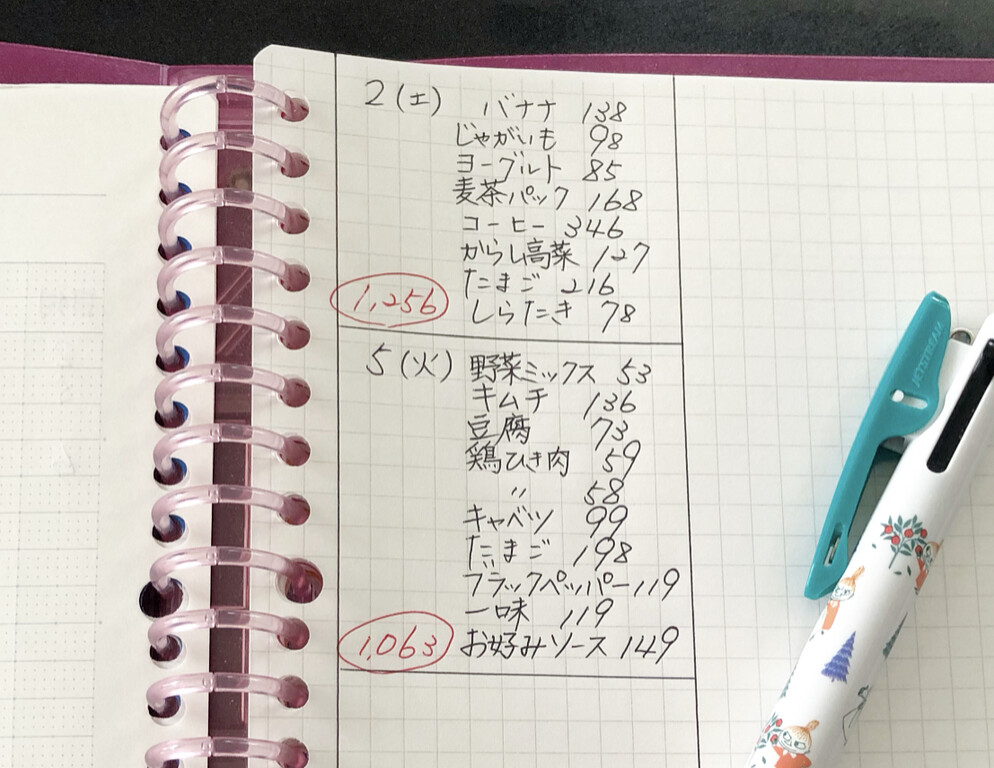 2(土) バナナ 138
じゃがいも 98
ヨーグルト 85
麦茶パック 168
コーヒー 346
からし高菜 127
たまご 216
1,256 しらたき 78
5(火) 野菜ミックス 53
キムチ 136
豆腐 73
鶏ひき肉 59
〃 58
キャベツ 99
たまご 198
ブラックペッパー 119
一味 119
1,063 お好みソース 149
JETSTREAM